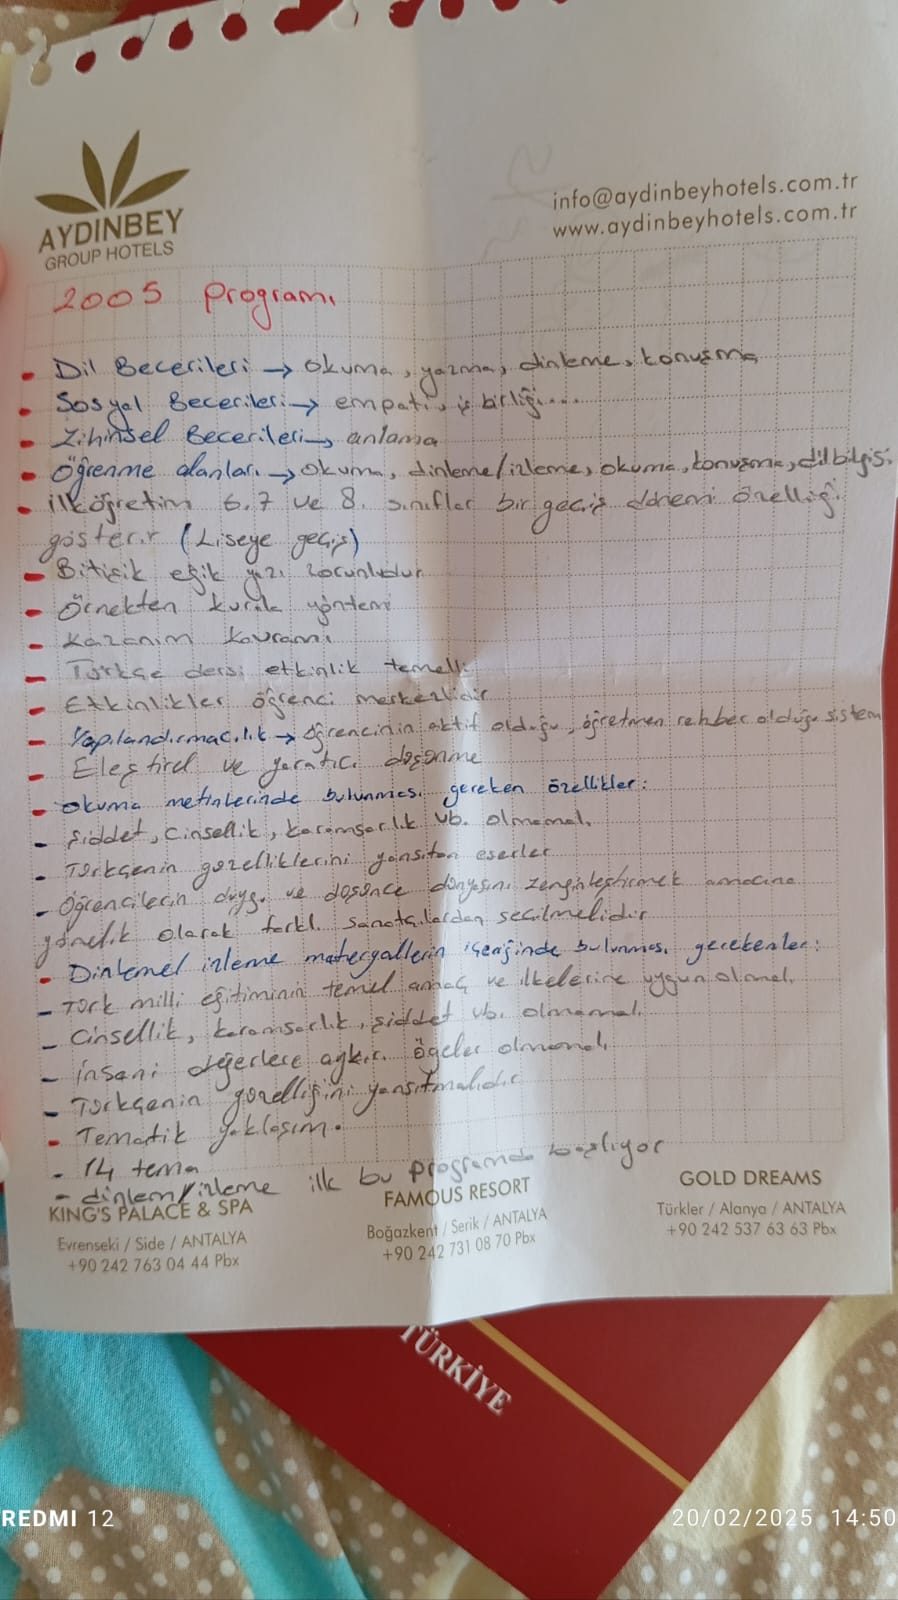 AYDINBEY
GROUP HOTELS
info@aydinbeyhotels.com.tr
www.aydinbeyhotels.com.tr
2005 Programı
Dil Becerileri → okuma, yazma, dinleme, konuşma
Sosyal Becerileri → empati, iş birliği...
Zihinsel Becerileri → anlama
Öğrenme alanları → okuma, dinleme/izleme, okuma, konuşma, dilbilgisi
İlköğretim 6.7 ve 8. sınıflar bir geçiş dönemi özelliği
gösterir (Liseye geçiş)
Bitişik eğik yazı zorunludur
Örnekten kurala yöntemi
Kazanım kavramı
Türkçe dersi etkinlik temelli
Etkinlikler öğrenci merkezlidir
Yapılandırmacılık → Öğrencinin aktif olduğu, öğretmen rehber olduğu sistem
Eleştirel ve yaratıcı düşünme
Okuma metinlerinde bulunması gereken özellikler:
- Şiddet, cinsellik, karamsarlık vb. olmamalı
- Türkçenin güzelliklerini yansıtan eserler
- Öğrencilerin duygu ve düşünce dünyasını zenginleştirmek amacına
yönelik olarak farklı sanatçılardan seçilmelidir
Dinleme/ izleme materyallerin içeriğinde bulunması gerekenler:
- Türk milli eğitiminin temel amaç ve ilkelerine uygun olmalı
- Cinsellik, karamsarlık, şiddet vb. olmamalı
- İnsani değerlere aykırı ögeler olmamalı
- Türkçenin güzelliğini yansıtmalıdır
Tematik yaklaşım.
- 14 tema
- dinlem/izleme ilk bu programda başlıyor
KING'S PALACE & SPA
Evrenseki / Side / ANTALYA
+90 242 763 04 44 Pbx
FAMOUS RESORT
Boğazkent / Serik / ANTALYA
+90 242 731 08 70 Pbx
GOLD DREAMS
Türkler / Alanya / ANTALYA
+90 242 537 63 63 Pbx
TÜRKİYE
REDMI 12
20/02/2025 14:50